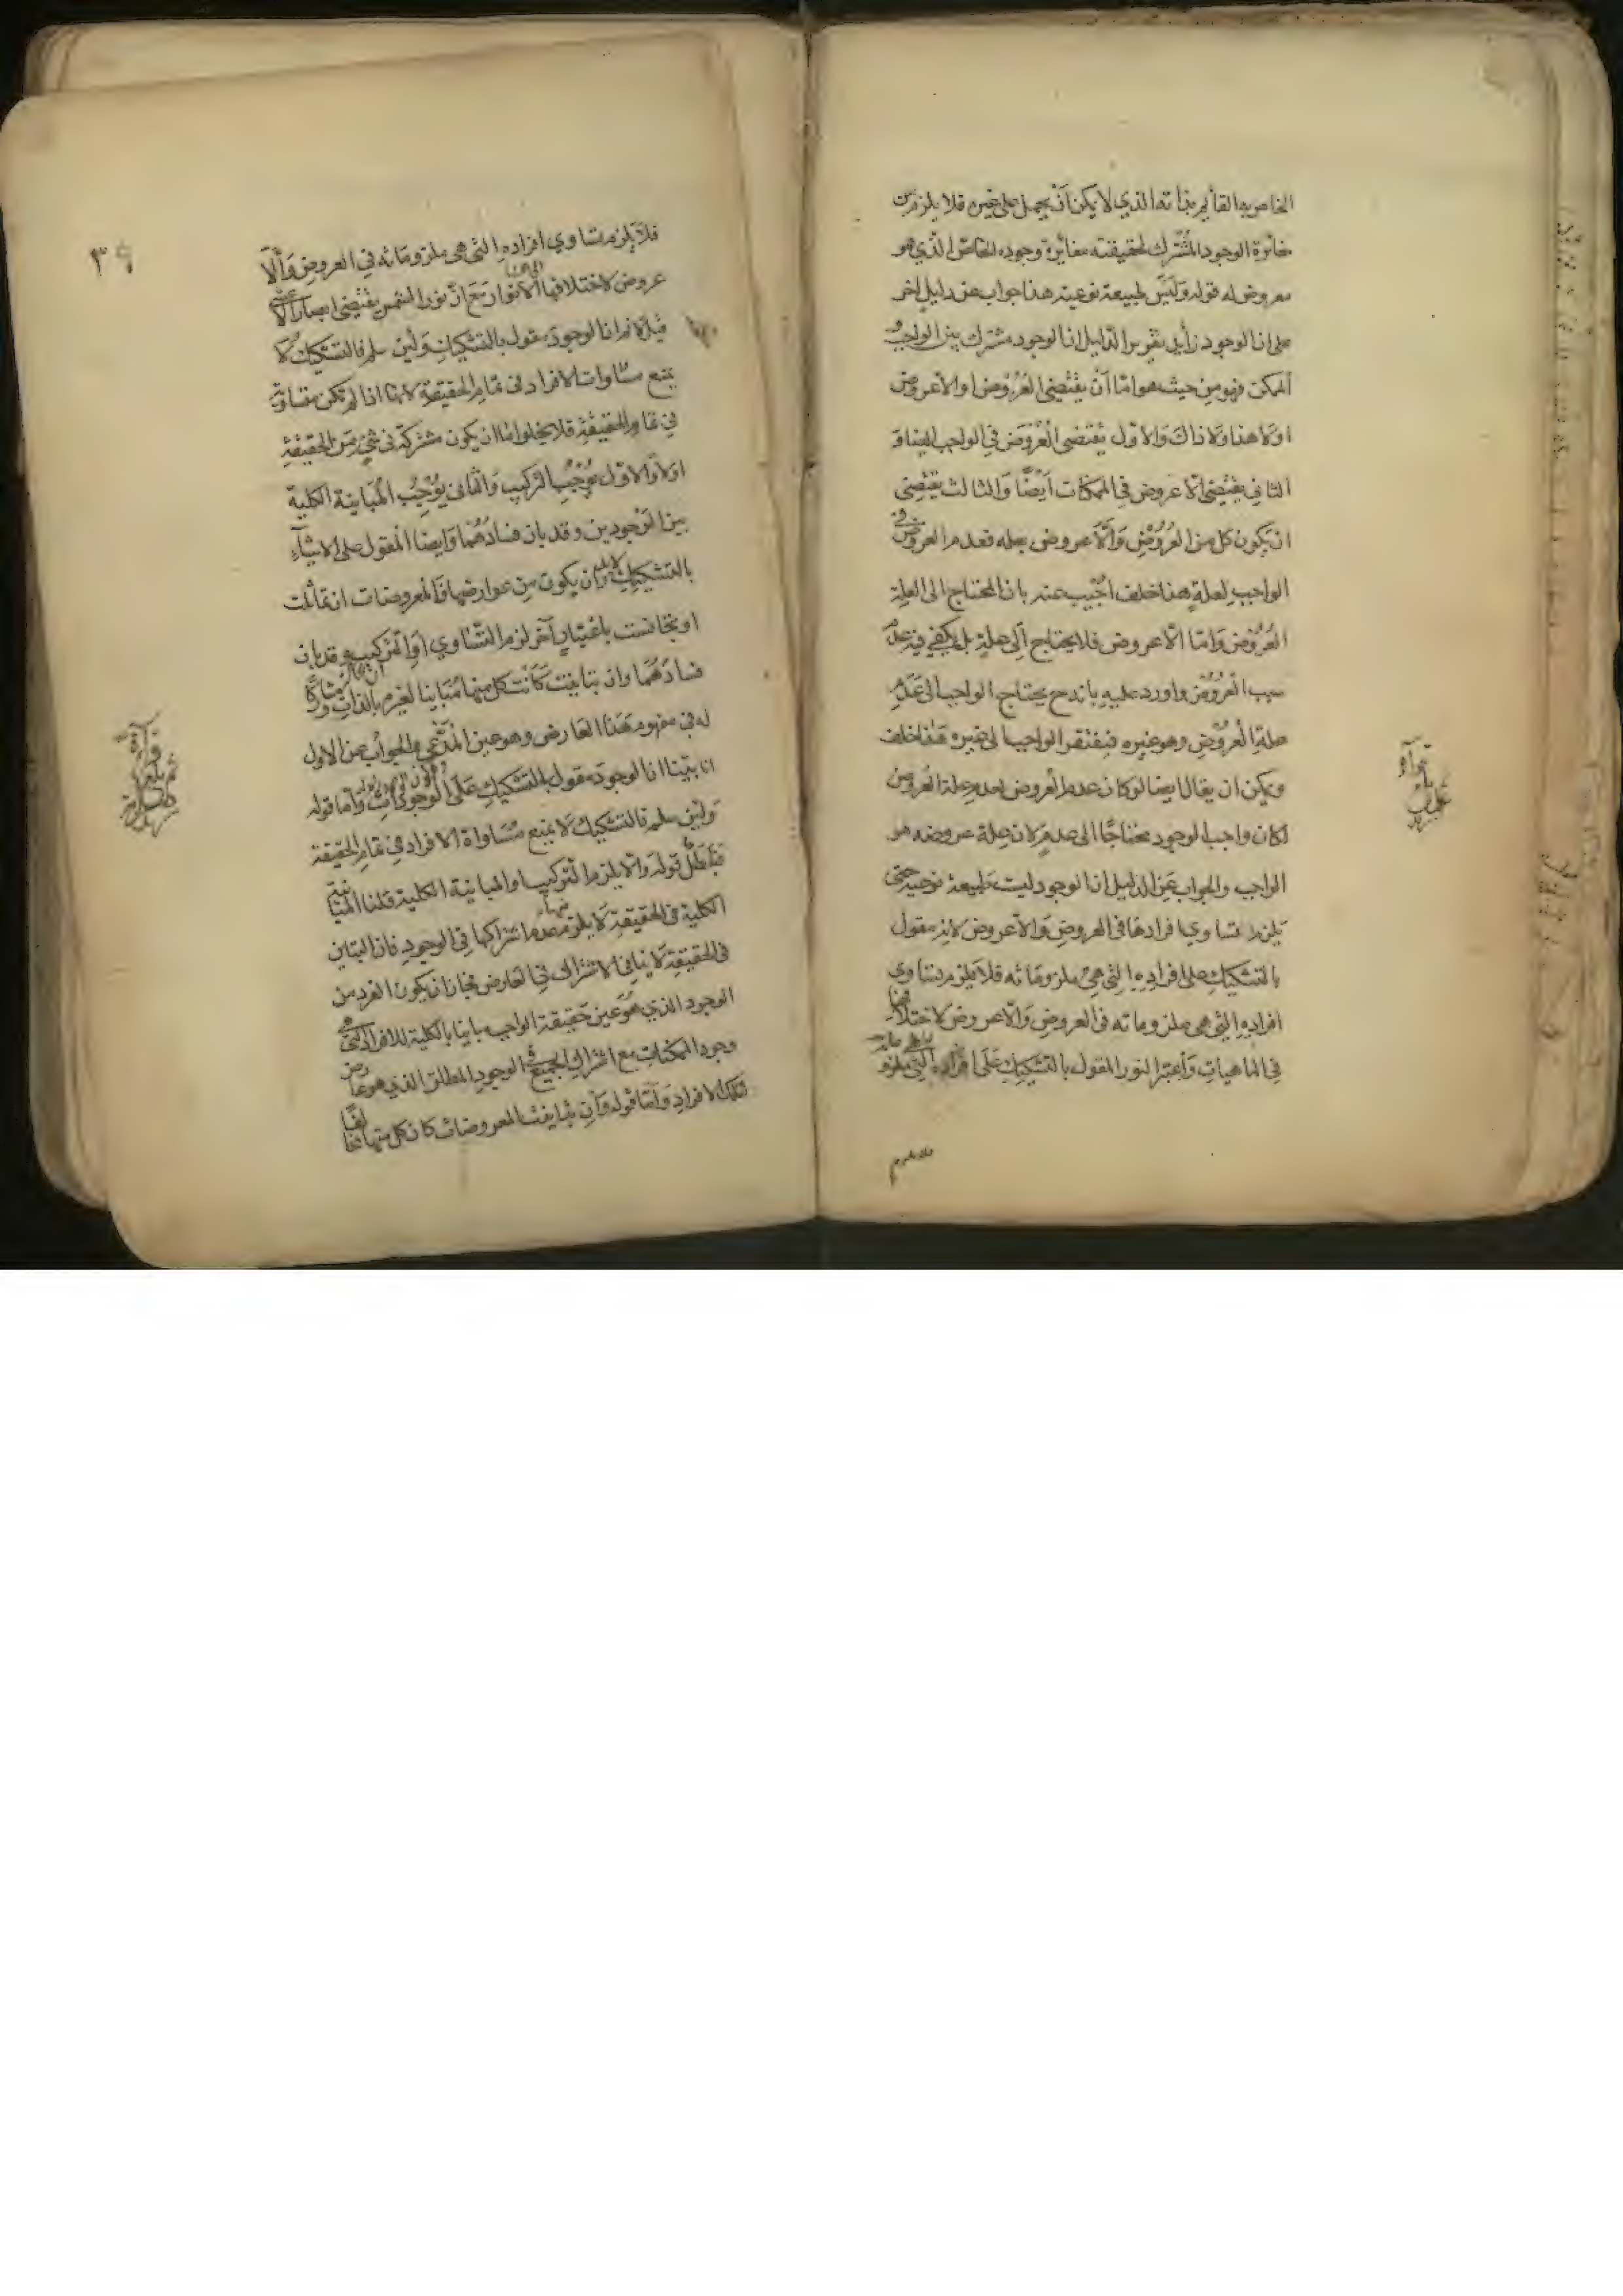 الخاص به القائم بذاته الذي لا يمكن أن يحمل على غيره فلا يلزم من
مغائرة الوجود المشترك لحقيقته مغائرة وجوده الخاص الذي هو
معروض له قوله وليس طبيعة نوعية هذا جواب عن دليل اخر
على ان الوجود زايد تقرير الدليل ان الوجود مشترك بين الواجب و
الممكن فهو من حيث هو اما أن يقتضي العروض او الاعروض
اولا هذا ولا ذاك والاول يقتضي العروض في الواجب ايضا و
الثاني يقتضي الاعروض في الممكنات أيضا والثالث يقتضي
ان يكون كل من العروض والاعروض بعلة فعدم العروض في
الواجب لعلة هذا خلف اجيب عنه بان المحتاج الى العلة
العروض واما الاعروض فلا يحتاج الى علة بل يكفي فيه عدم
سبب العروض واورد عليه بانه ح يحتاج الواجب الى عدم
علة العروض وهو غيره فيفتقر الواجب الى غيره هذا خلف
ويمكن ان يقال ايضا لو كان عدم العروض لعدم علة العروض
لكان واجب الوجود محتاجا الى عدم لان علة عروضه هو
الواجب والجواب عن الدليل ان الوجود ليست طبيعة نوعية حتى
يلزم تساوي افرادها في العروض والاعروض لانه مقول
بالتشكيك على افراده التي هي ملزوماته فلا يلزم تساوي
افراده التي هي ملزوماته في العروض والاعروض لاختلافها
في الماهيات وأعتبر النور المقول بالتشكيك على افراده التي ملزو
فلا يلزم
٣٩
فلا يلزم تساوي افراده التي هي ملزوماته في العروض والا
عروض لاختلافها الانوار مع ان نور الشمس يقتضي ابصار الاعشى
قيل لا نم ان الوجود مقول بالتشكيك ولئن سلم فالتشكيك لا
يمنع مساوات الافراد في تمام الحقيقة لانها اذا لم تكن متساوية
في تمام الحقيقة فلا يخلوا اما ان يكون مشتركة في شيء من الحقيقة
اولا والاول يوجب التركيب والثاني يوجب المباينة الكلية
بين الوجودين وقد بان فسادهما وايضا المقول على الاشياء
بالتشكيك لابد وان يكون من عوارضها فالمعروضات ان تماثلت
او تجانست باعتبار آخر لزم التساوي او التركيب وقد بان
فسادهما وان تباينت كانت كل منها مباينا لغيره بالذات ومشاركا
له في مفهوم هذا العارض وهو عين المدعي والجواب عن الاول
انا بينا ان الوجود مقول بالتشكيك على الوجودات واما قوله
ولئن سلم فالتشكيك لا يمنع مساواة الافراد في تمام الحقيقة
فباطل قوله والا يلزم التركيب والمباينة الكلية قلنا المباينة
الكلية في الحقيقة لا يلزم منها عدم اشتراكها في الوجود فان التباين
في الحقيقة لا ينافي الاشتراك في العارض فجاز ان يكون الفرد من
الوجود الذي هو عين حقيقة الواجب مباينا بالكلية للافراد التي هي
وجود الممكنات مع اشتراك الجميع في الوجود المطلق الذي هو عارض
لتلك الافراد واما قوله وان تباينت المعروضات كان كل منها مخالفا